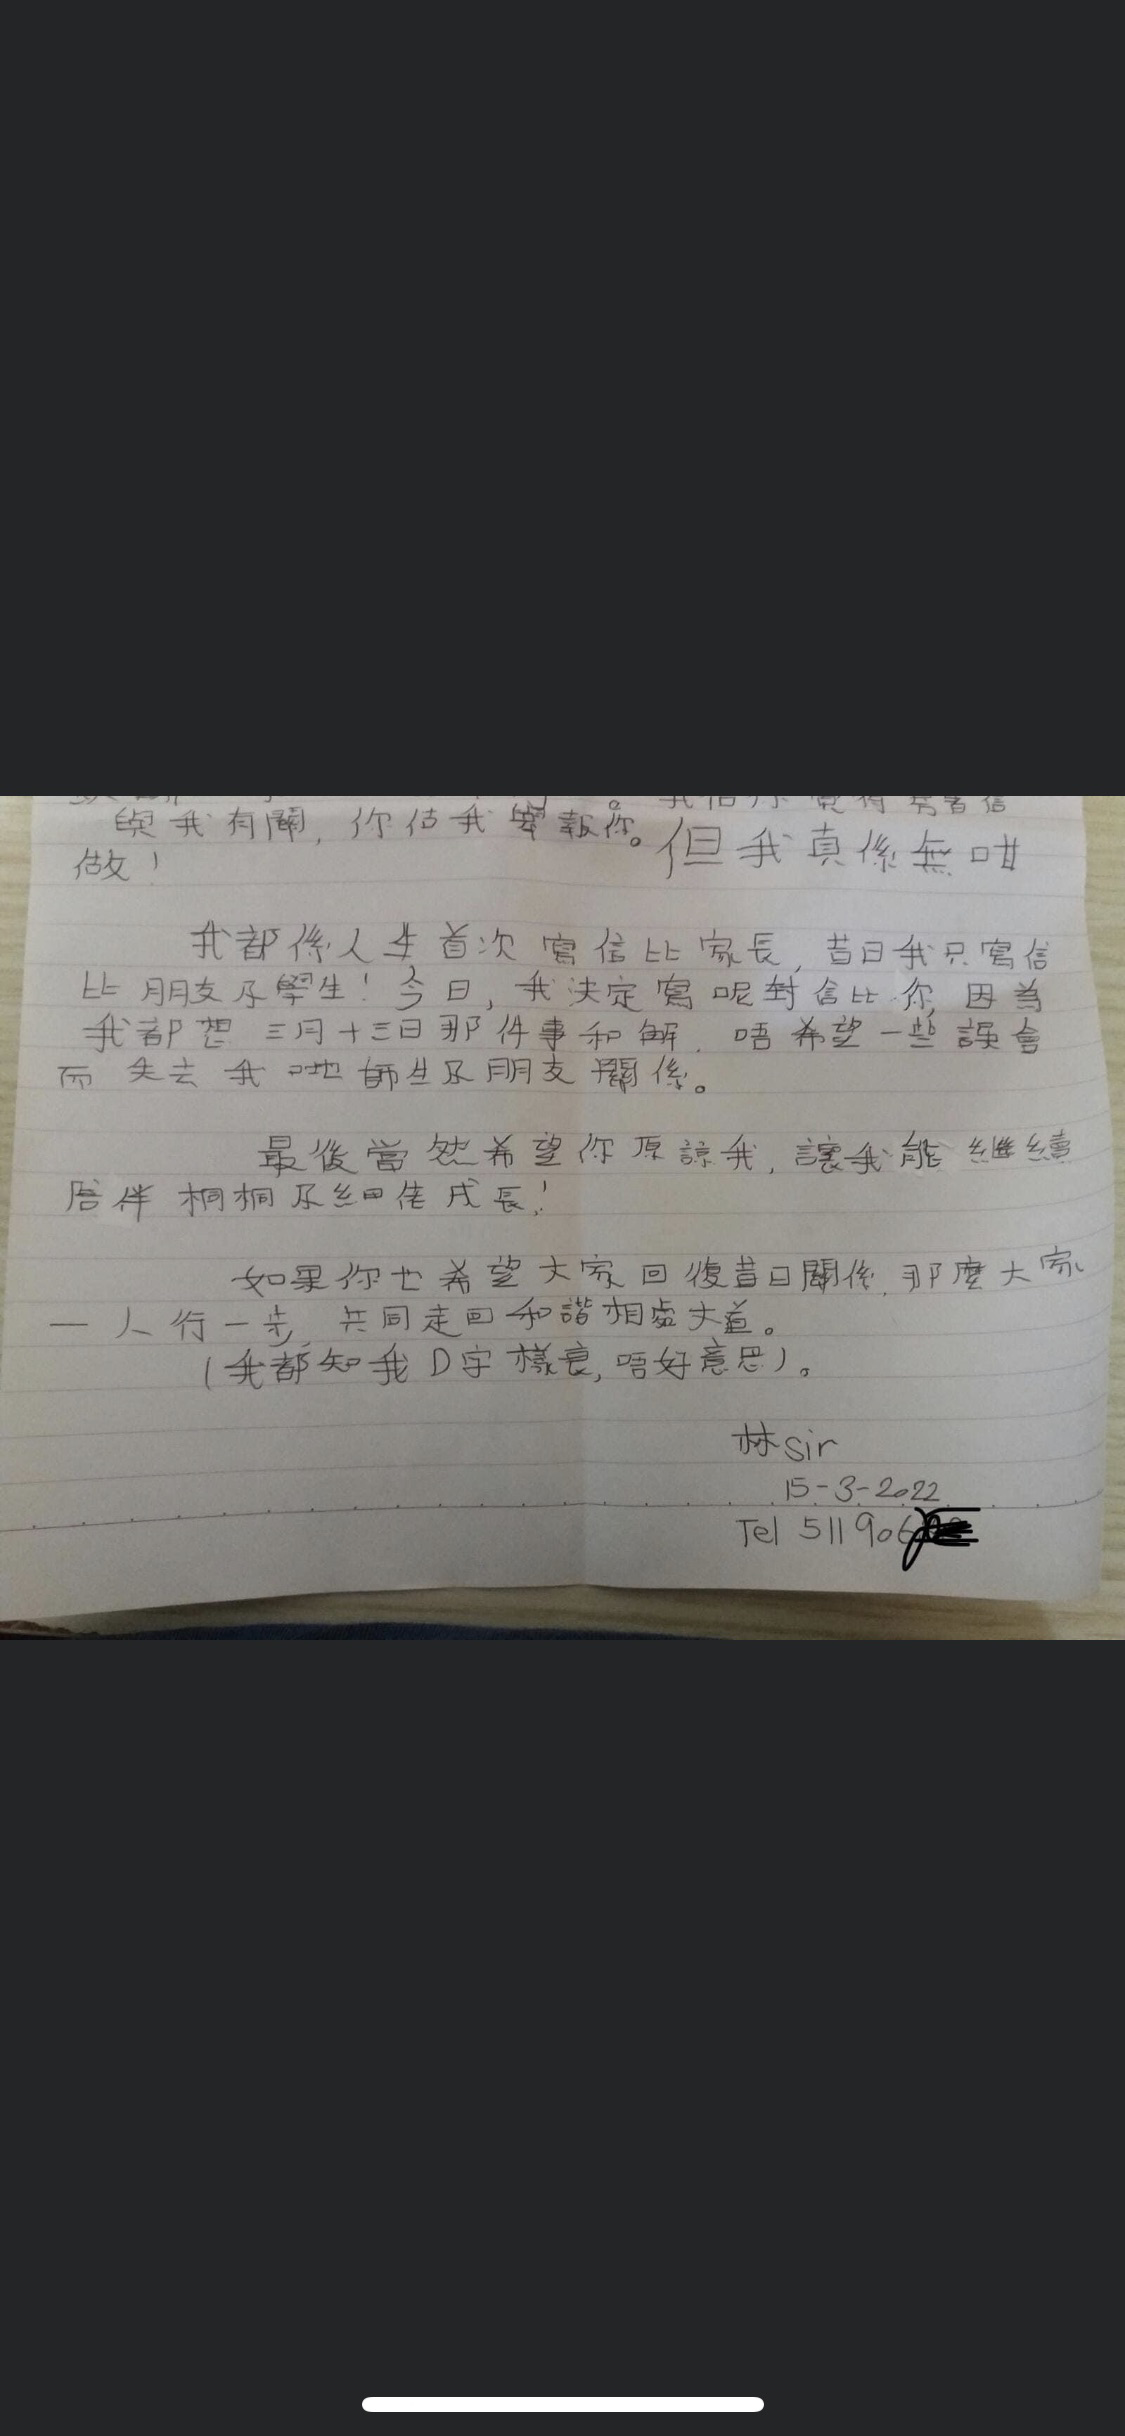 我估你覺得寄書信
與我有關，你估我要報你。但我真係無咁
做！
我都係人生首次寫信比家長，昔日我只寫信
比朋友及學生！今日，我決定寫呢封信比你，因為
我都想三月十三日那件事和解，唔希望一些誤會
而失去我哋師生及朋友關係。
最後當然希望你原諒我，讓我能繼續
陪伴桐桐及細佬成長！
如果你也希望大家回復昔日關係，那麼大家
一人行一步，共同走回和諧相處大道。
（我都知我D字樣衰，唔好意思）。
林sir
15-3-2022
Tel 511906